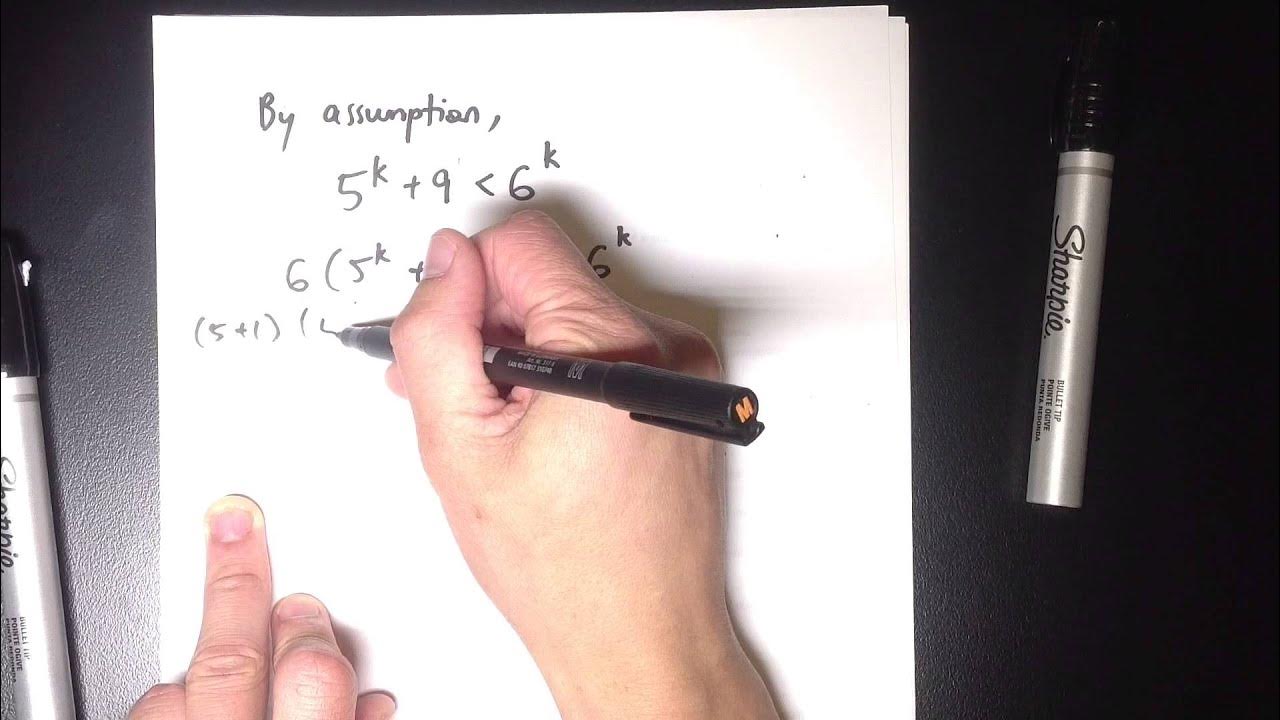 By assumption,
5^k + 9 < 6^k
6 (5^k + 6^k
(5+1) (
M
Sharpie.
BULLET TIP
POINTE OGIVE
PUNTA REDONDA
Sharpie.
BULLET TIP
POINTE OGIVE